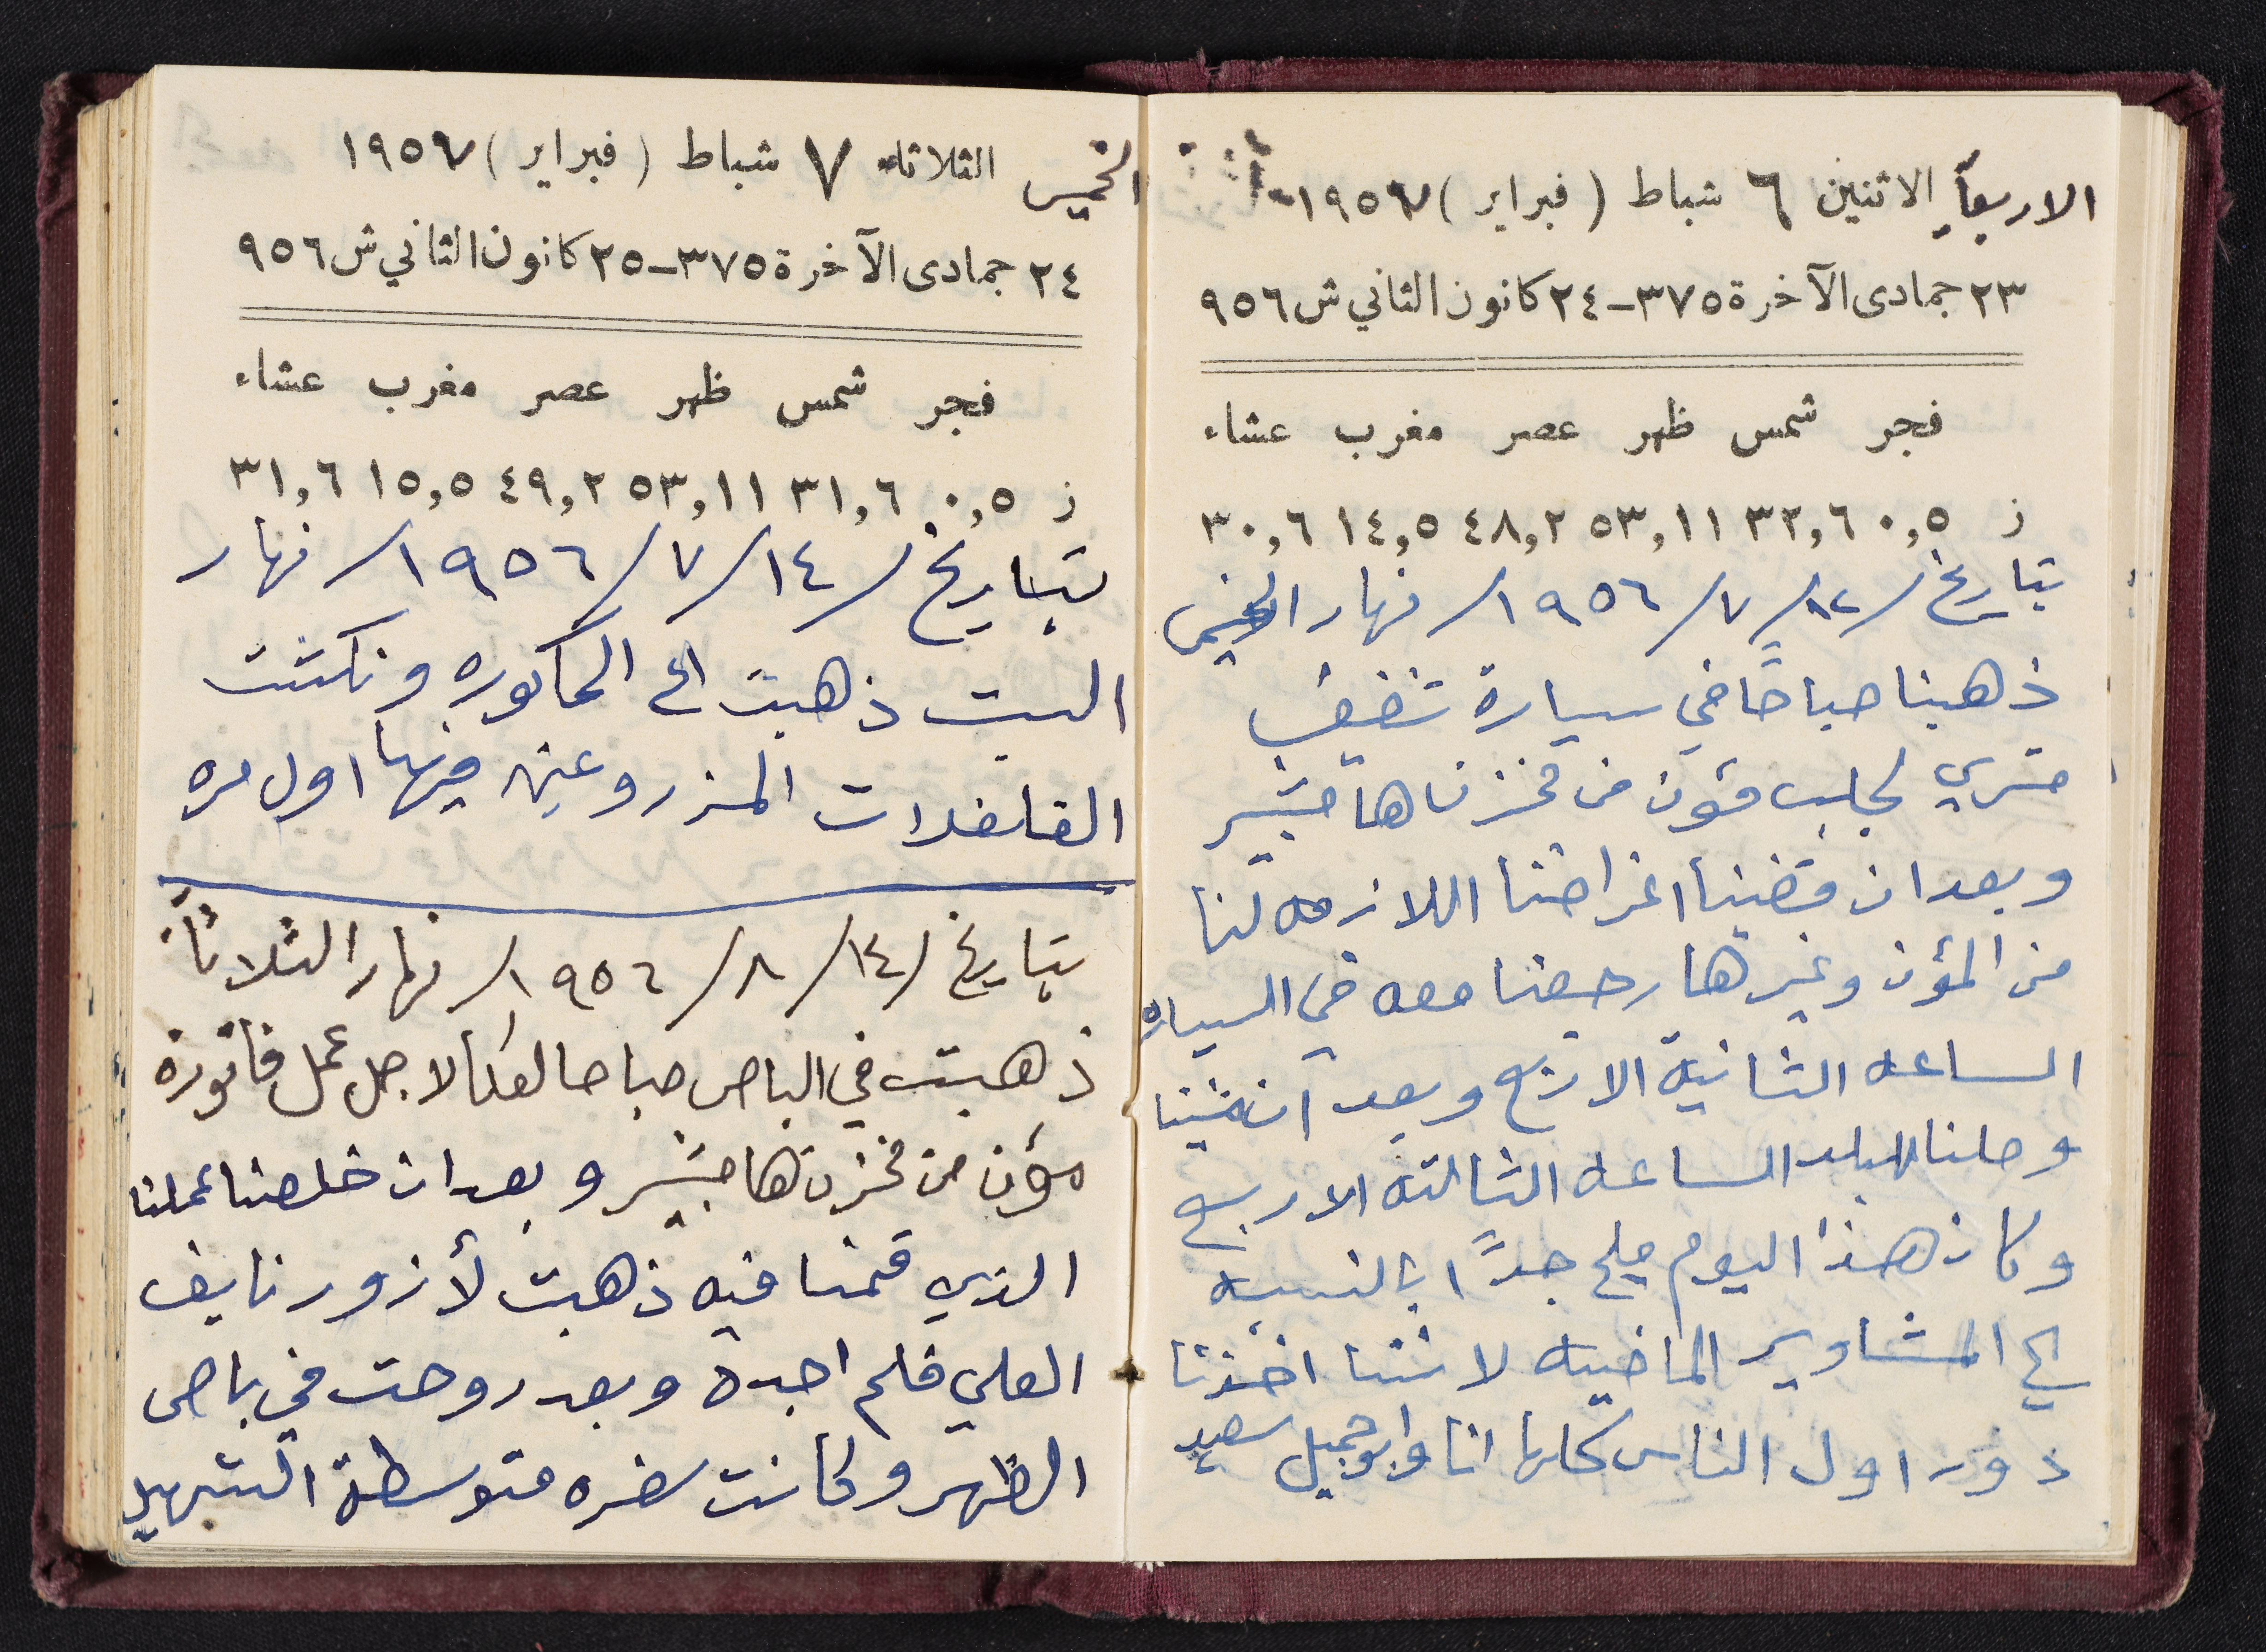 الاربعاء الاثنين ٦ شباط ( فبراير ) ١٩٥٧
٢٣ جمادى الآخرة ٣٧٥ – ٢٤ كانون الثاني ش ٩٥٦
فجر شمس ظهر عصر مغرب عشاء
ز ٠,٥ ٣٢,٦ ٥٣,١١ ٤٨,٢ ١٤,٥ ٣٠,٦
بتاريخ / ١٢ / ٧ / ١٩٥٦ / نهار الخميس
ذهبنا صباحًا في سيارة شفيق
متري لجلب مؤن من مخزن هامشير
وبعد ان قضينا اغراضنا اللازمه لنا
من المؤن وغيرها رجعنا معه في السياره
الساعه الثانية الا ربع وبعد ان
وصلنا للبلد الساعه الثالثه الا ربع
وكان هذا اليوم مليح جدًا بالنسبه
الى المشاوير الماضيه لاننا اخذنا
دور اول الناس كلها انا وابو جميل سعيد
الخميس الثلاثاء ٧ شباط ( فبراير ) ١٩٥٧
٢٤ جمادى الآخرة ٣٧٥ – ٢٥ كانون الثاني ش ٩٥٦
فجر شمس ظهر عصر مغرب عشاء
ز ٠,٥ ٣١,٦ ٥٣,١١ ٤٩,٢ ١٥,٥ ٣١,٦
بتاريخ / ١٤ / ٧ / ١٩٥٦ / نهار
السبت ذهبت الى الحاكوره ونكشت
القلفلات المزروعين فيها اول مره
بتاريخ / ١٤ / ٨ / ١٩٥٦ / نهار الثلاثاء
ذهبت في الباص صباحا لعكا لاجل عمل فاتورة
مؤن من مخزن هامشير وبعد ان خلصنا عملنا
الذي قمنا فيه ذهبت لأزور نايف
العلي فلم اجده وبعد روحت في باص
الظهر وكانت سفره متوسطة التسهيل